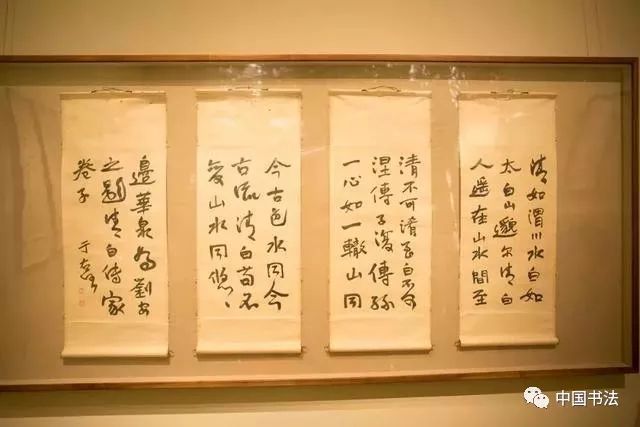 清如渭川水白如
太白山邈尔清白
人遥在山水間至
清不可淆至白不可
涅傳子復傳孫
一心如一轍山同
今古色水同今
古流清白苟不
變山水同悠〻
邊華泉為劉安
之題清白傳家
卷子
于右任
中国书法